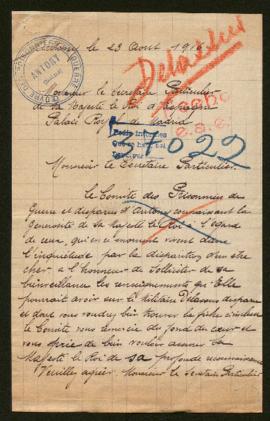 le 23 Aout 1916
Delacher
Monsieur le Secrétaire Particulier
de Sa Majesté le Roi d'Espagne
Palais Royal de Madrid
7022
Monsieur le Secrétaire Particulier.
Le Comité des Prisonniers de
Guerre et disparus d'Antony connaissant la
Générosité de Sa Majesté le Roi à l'égard
de ceux, qui en ce moment vivent dans
l'inquiétude par la disparition d'un être
cher a l'honneur de solliciter de sa
bienveillance les renseignements qu'Elle
pourrait avoir sur le militaire disparu
et dont vous voudrez bien trouver la fiche
le Comité vous remercie du fond du cœur et
vous prie de bien vouloir assurer Sa
Majesté le Roi de sa profonde reconnaissance
Veuillez agréer Monsieur le Secrétaire Particulier